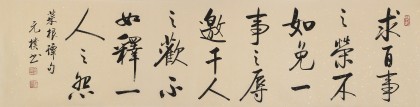 求百事
之榮不
如免一
事之辱
邀千人
之歡不
如釋一
人之怨
菜根譚句
元樸書